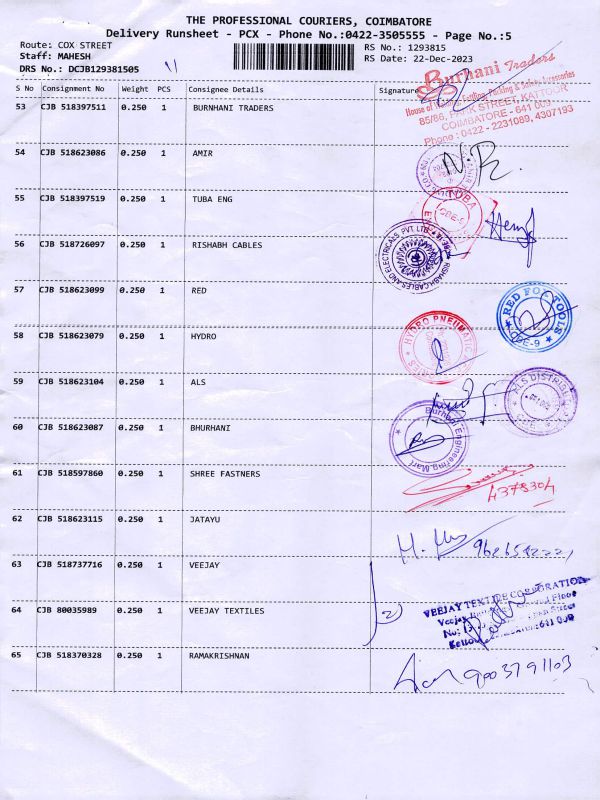 THE PROFESSIONAL COURIERS, COIMBATORE
Delivery Runsheet - PCX - Phone No.:0422-3505555 - Page No.:5
Route: COX STREET
RS No.: 1293815
Staff: MAHESH
RS Date: 22-Dec-2023
DRS No.: DCJB129381505
11
S No Consignment No Weight PCS Consignee Details Signature
53 CJB 518397511 0.250 1 BURNHANI TRADERS
Burhani Traders
85/86, PARK STREET, KATTOOR
COIMBATORE - 641 009
Phone : 0422 - 2231089, 4307193
54 CJB 518623086 0.250 1 AMIR
N.R.
55 CJB 518397519 0.250 1 TUBA ENG
TUBA
CBE-9
56 CJB 518726097 0.250 1 RISHABH CABLES
RISHABH CABLES AND ELECTRICALS PVT. LTD.
57 CJB 518623099 0.250 1 RED
RED FOX TOOLS
CBE-9
58 CJB 518623079 0.250 1 HYDRO
HYDRO PNEUMATIC
59 CJB 518623104 0.250 1 ALS
ALS DISTRIBU
60 CJB 518623087 0.250 1 BHURHANI
Burhani Engineering Mart
61 CJB 518597860 0.250 1 SHREE FASTNERS
4378304
62 CJB 518623115 0.250 1 JATAYU
63 CJB 518737716 0.250 1 VEEJAY
2
VEEJAY TEXTILE CORPORATION
64 CJB 80035989 0.250 1 VEEJAY TEXTILES
65 CJB 518370328 0.250 1 RAMAKRISHNAN
9003791103